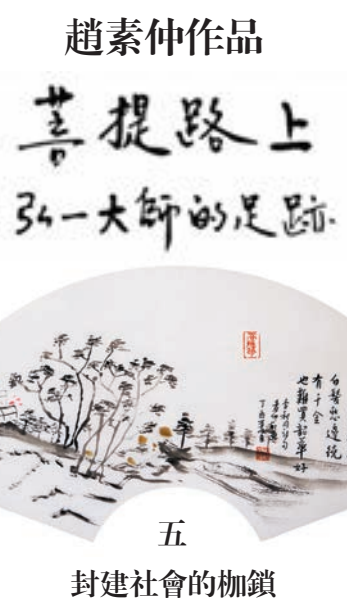 趙素仲作品
菩提路上
弘一大師的足跡
白鬢愁邊說
有千金
也難買韶華好
五
封建社會的枷鎖